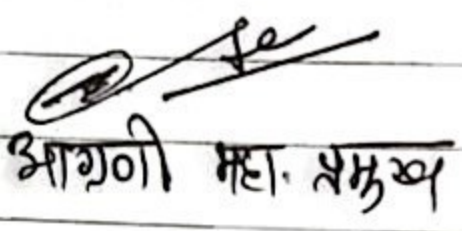 आग्रणी महा. प्रमुख